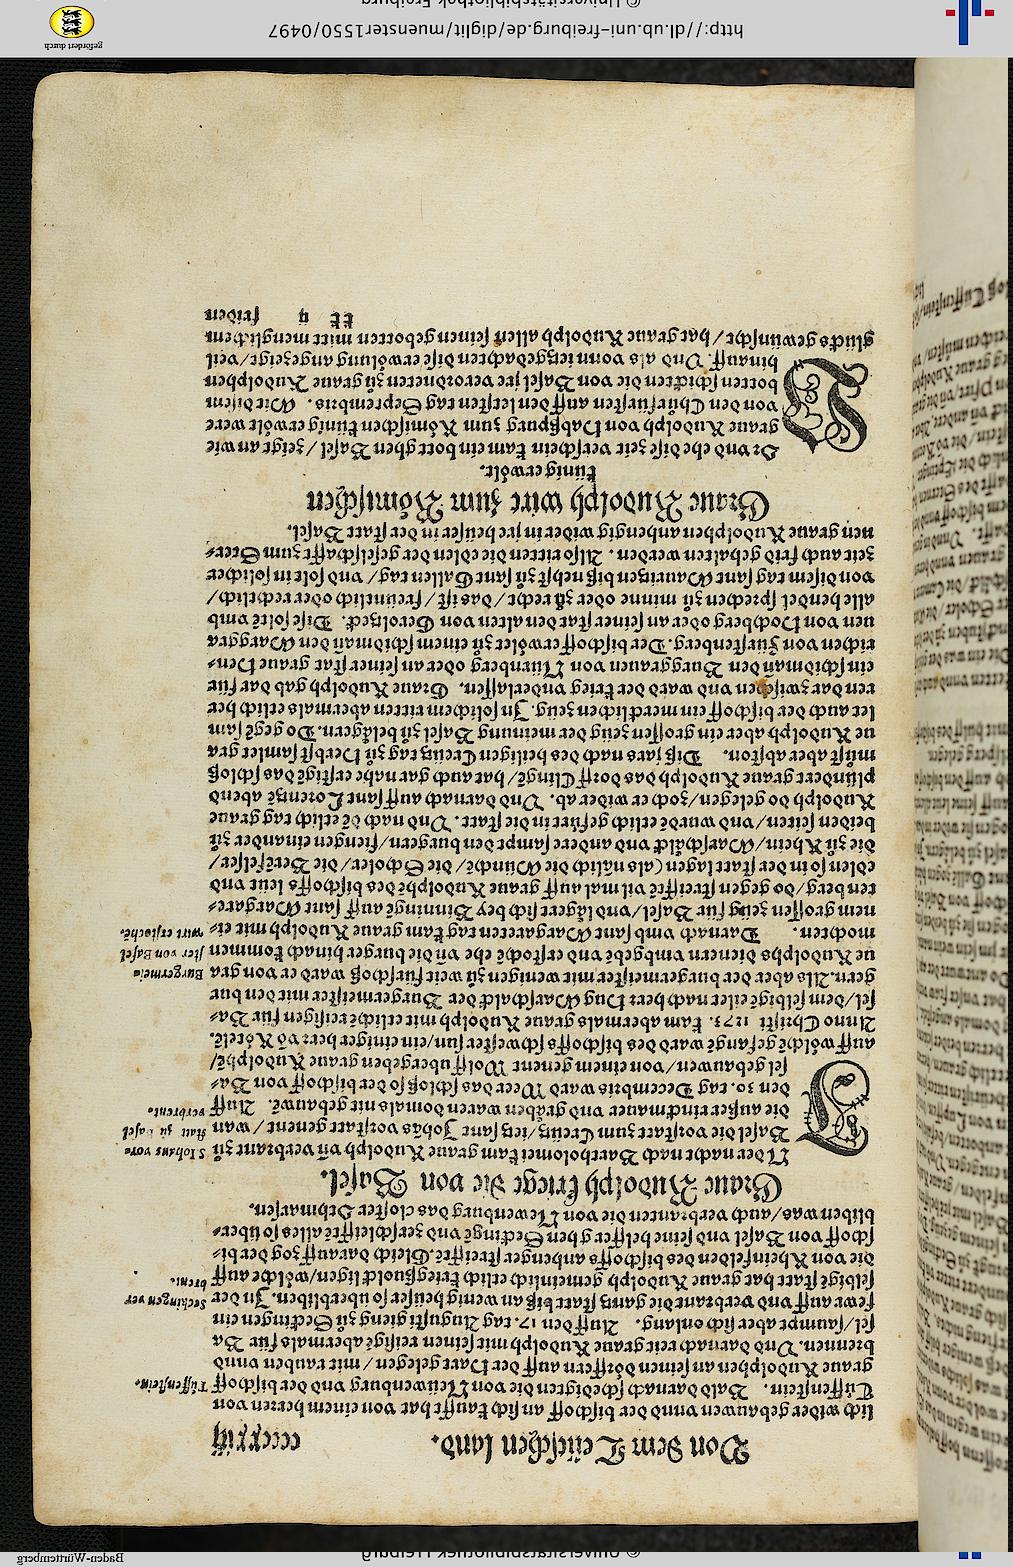 Von dem Teütschen land. ccccxxiij
lich wider gebauwen vnnd der bischoff an sich kaufft hat von einem herren von
Tüffenstein. Bald darnach schedigten die von Neüwenburg vnd der bischoff
graue Rudolphen an seinen dörffern auff der Hart gelegen / mit rauben vnnd
brennen. Vnd darnach reit graue Rudolph mit seinen reisigē abermals für Ba
sel / saumpt aber sich onlang. Auff den 17. tag Augusti gieng zů Seckingen ein
fewr auff vnd verbrant die gantz statt biß an wenig heüser so überbliben. In der
selbigē statt hat graue Rudolph gemeinlich etlich kriegßuolck ligen / wölche auff
die von Rheinfelden des bischoffs anhenger streifftē. Gleich darauff zog der bi-
schoff von Basel vnd seine helffer ghen Seckingē vnd zerschleifftē alles so über-
bliben was / auch verbranten die von Newenburg das closter Othmarsen.
Tüffenstein.
Seckingen ver
brent.
Graue Rudolph kriegt die von Basel.
Vber nach nach Bartholomei kam graue Rudolph vñ verbrant zů
Basel die vorstatt zum Creütz / ietz sant Johās vorstatt genent / wan
die ausser rinckmauer vnd gräben waren domals nit gebauwē. Auff
den 30. tag Decembris ward Weer das schloß so der bischoff von Ba-
sel gebauwen / von einem genent Wolff übergeben graue Rudolphē /
auff wölchē gefangē ward des bischoffs schwester sun / ein einiger herr võ Röttelē.
S Iohans vor=
statt zů Basel
verbrent.
Anno Christi 1273. kam abermals graue Rudolph mit etlichē reisigen für Ba-
sel / dem selbigē eilet nach herr Hug Marschalck der Burgermeister mit den bur
gern. Als aber der burgermeister mit wenigen zů weit fürschoß ward er von gra
ue Rudolphs dienern vmbgebē vnd erstochē ehe vñ die burger hinach kommen
mochten. Darnach vmb sant Margareten tag kam graue Rudolph mit ei-
nem grossen zeüg für Basel / vnd lägert sich bey Binningē auff sant Margare-
ten berg / do gegen streifftē vil mal auff graue Rudolphē des bischoffs leut vnd
edlen so in der statt lagen (als nälich die Münchē / die Schaler / die Berēfelser /
die zů Rhein / Marschälck vnd andere sampt den burgern / fiengen einander zů
beiden seiten / vnd wurdē etlich gefürt in die statt. Vnd nach dē etlich tag graue
Rudolph do gelegen / zoch er wider ab. Vnd darnach auff sant Lorentzē abend
plündert graue Rudolph das dorff Clingē / hat auch gar nahe erstigē das schloß
můst aber abston. Diß jars nach des heiligen Creütz tag zů Herbst samlet gra
ue Rudolph aber ein grossen zeüg der meinung Basel zů belägern. Do gegē sam
let auch der bischoff ein mercklichen zeüg. In solichem ritten abermals etlich her
ren dar zwischen vnd ward der krieg vnderlassen. Graue Rudolph gab dar für
ein schidman den Burggrauen von Nürnberg oder an seiner stat graue Hen-
richen von Fürstenberg. Der bischoff erwölet zů einem schidmañ den Marggra
uen von Hochberg oder an seiner stat den alten von Geroltzeck. Dise soltē vmb
alle hendel sprechen zů minne oder zů recht / das ist / freüntlich oder rechtlich /
von disem tag sant Mauritzen biß nehst zů sant Gallen tag / vnd solt in solicher
zeit auch frid gehalten werden. Also ritten die edlen der geselschafft zum Ster-
nen graue Rudolphen anhengig wider in jre heüser in der statt Basel.
Burgermei=
ster von Basel
wirt erstochē.
Graue Rudolph wirt zum Römischen
künig erwölt.
Or vnd ehe dise zeit verschein kam ein bott ghen Basel / zeigt an wie
graue Rudolph von Habßpurg zum Römischen künig erwölt were
von den Chůrfürsten auff den letsten tag Septembris. Mit disem
botten schickten die von Basel jre verordneten zů graue Rudolphen
hinauff. Vnd als vonn ietzgedachten dise erwölung angezeigt / veil
glücks gewünscht / hat graue Rudolph allen seinen gebotten mitt mengklichem
tt ij friden
http://dl.ub.uni-freiburg.de/diglit/muenster1550/0497
© Universitätsbibliothek Freiburg
gefördert durch
Baden-Württemberg